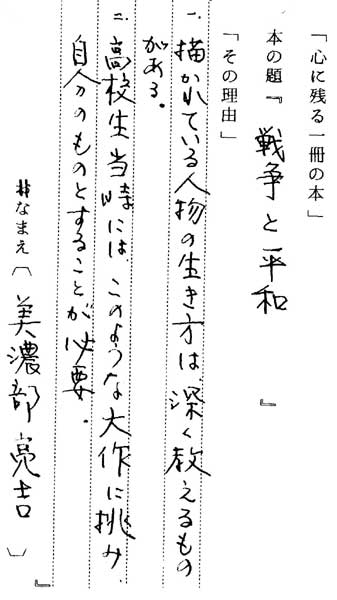 「心に残る一冊の本」
本の題『戦争と平和』
「その理由」
一、描かれている人物の生き方は、深く教えるもの
がある。
二、高校生当時には、このような大作に挑み、
自分のものとすることが必要。
おなまえ〔美濃部亮吉〕』